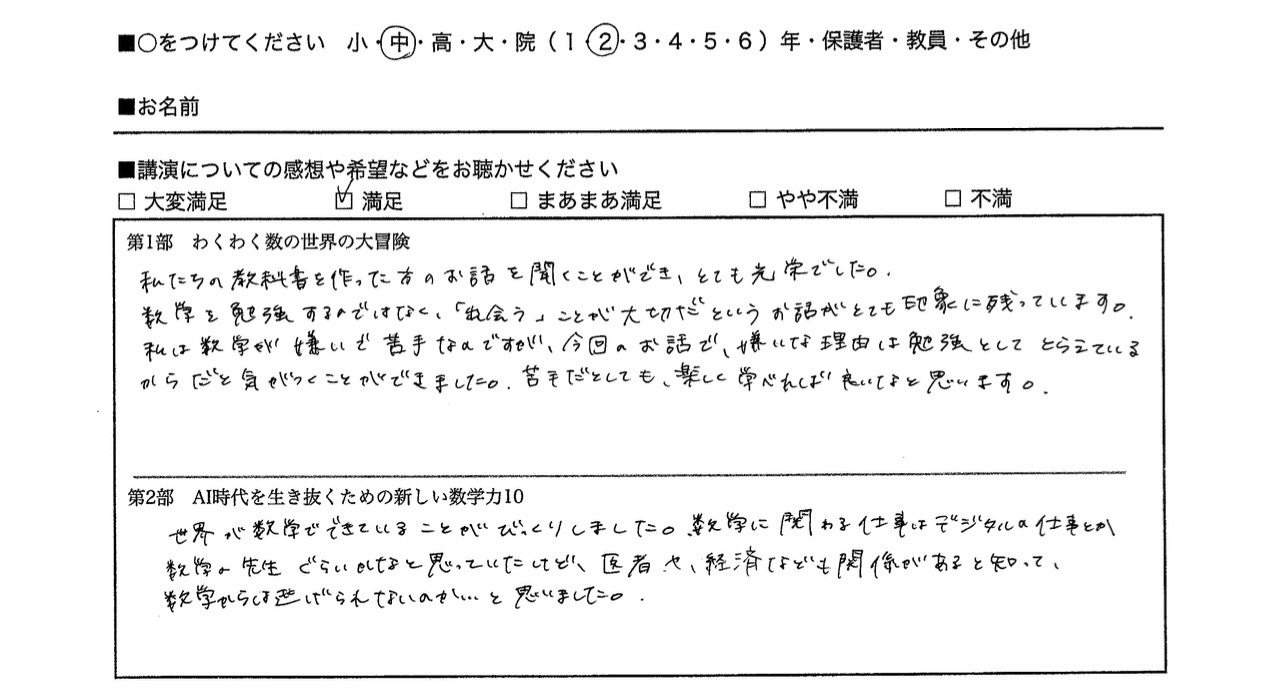 ■○をつけてください　小・中・高・大・院（1・2・3・4・5・6）年・保護者・教員・その他
■お名前
■講演についての感想や希望などをお聴かせください
□ 大変満足　☑ 満足　□ まあまあ満足　□ やや不満　□ 不満
第1部　わくわく数の世界の大冒険
私たちの教科書を作った方のお話を聞くことができ、とても光栄でした。
数学を勉強するのではなく、「出会う」ことが大切だというお話がとても印象に残っています。
私は数学が嫌いで苦手なのですが、今回のお話で、嫌いな理由は勉強としてとらえている
からだと気がつくことができました。苦手だとしても、楽しく学べれば良いなと思います。
第2部　AI時代を生き抜くための新しい数学力10
世界が数学でできていることがびっくりしました。数学に関わる仕事はデジタルの仕事とか
数学の先生ぐらいかなと思っていたけど、医者や、経済なども関係があると知って、
数学からは逃げられないのか…と思いました。